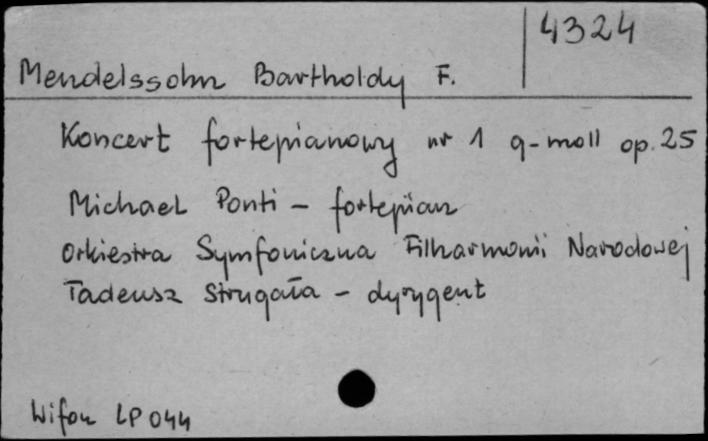 4324
Mendelssohn Bartholdy F.
Koncert fortepianowy nr 1 g-moll op. 25
Michael Ponti - fortepian
Orkiestra Symfoniczna Filharmonii Narodowej
Tadeusz Strugała - dyrygent
Wifon LP 044